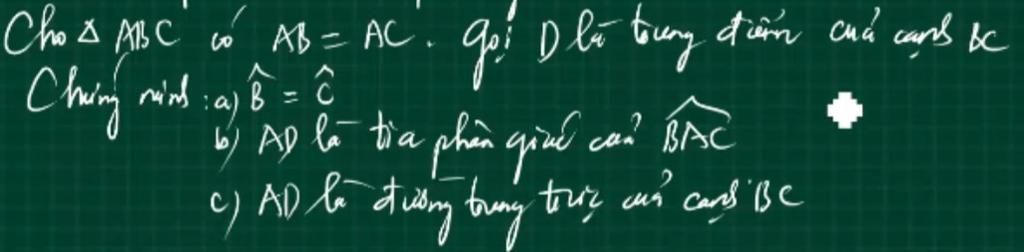 Cho Δ ABC có AB = AC. gọi D là trung điểm của cạnh BC
Chứng minh : a) B̂ = Ĉ
b) AD là tia phân giác của \widehat{BAC}
c) AD là đường trung trực của cạnh BC